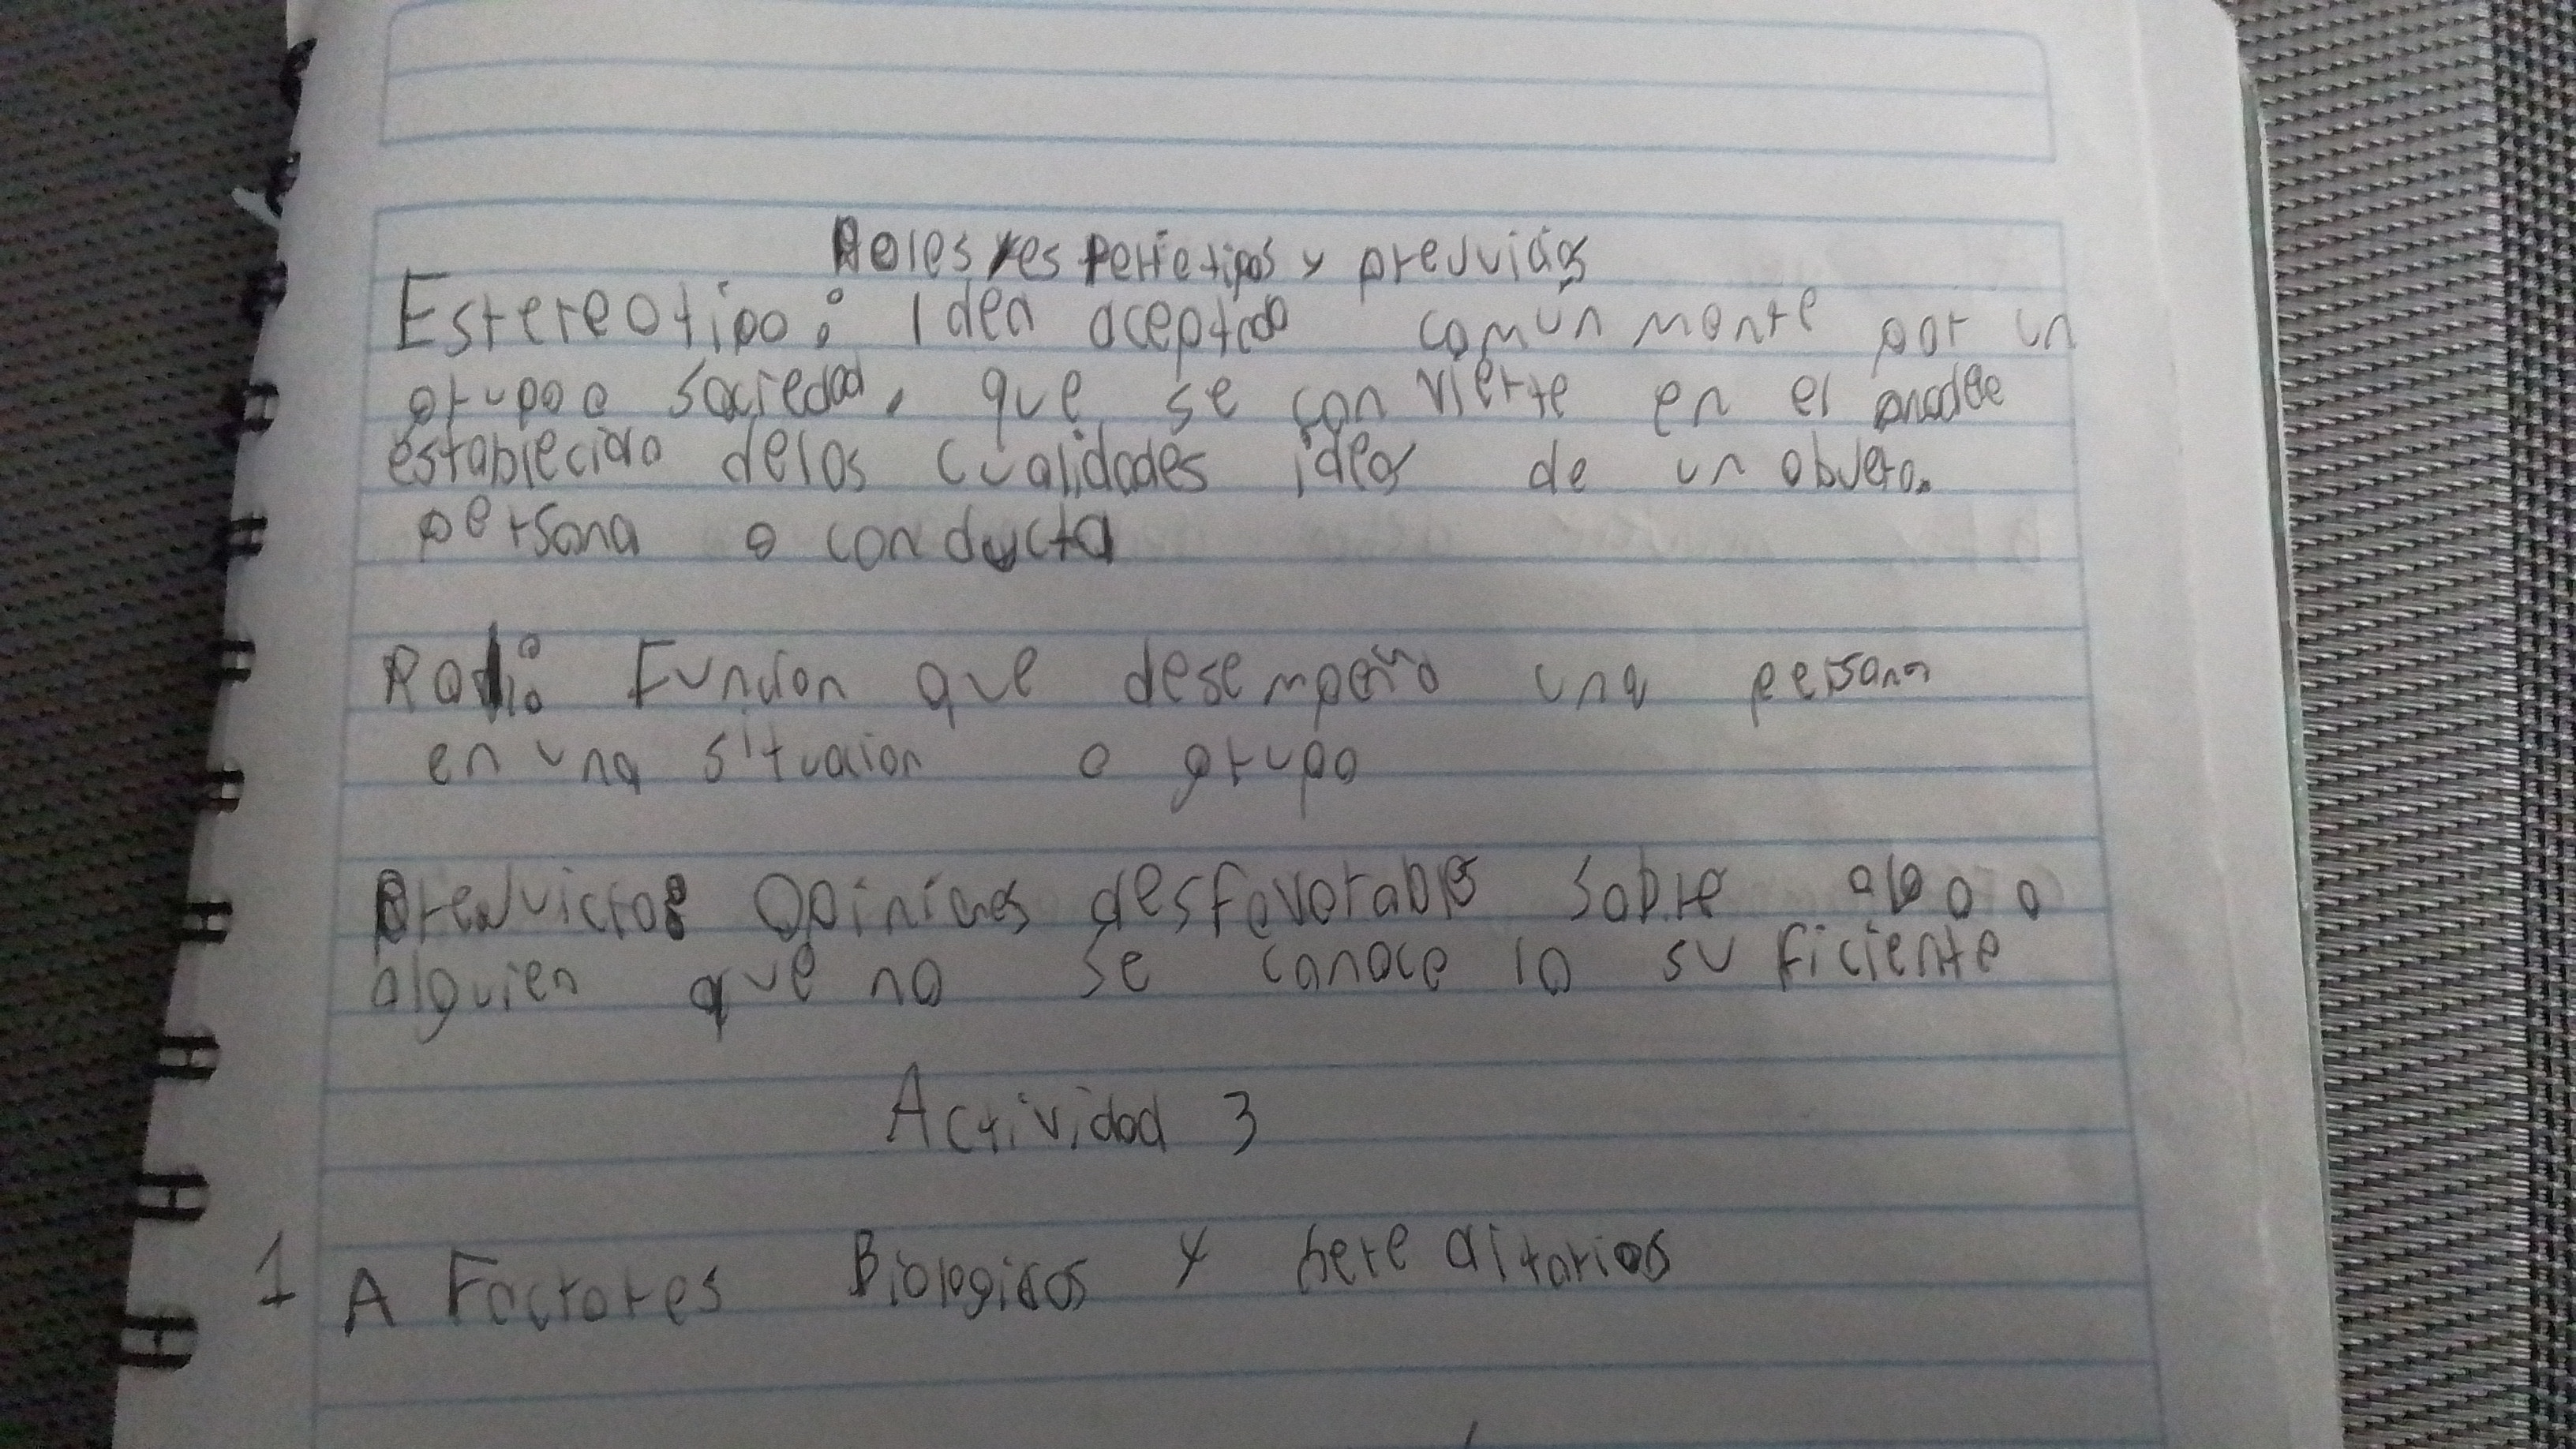 Roles res peries tipos y prejuicios
Estereotipo: Idea aceptado comúnmente por un
grupo o sociedad, que se convierte en el
establecido delos cualidades ideas de un objeto.
persona o conducta
Rol: Funcion que desempeño una persona
en una situacion o grupo
Prejuicio: Opiniones desfavorables sobre algo o
alguien que no se conoce lo suficiente
Actividad 3
1 A Factores Biologicos y hereditarios